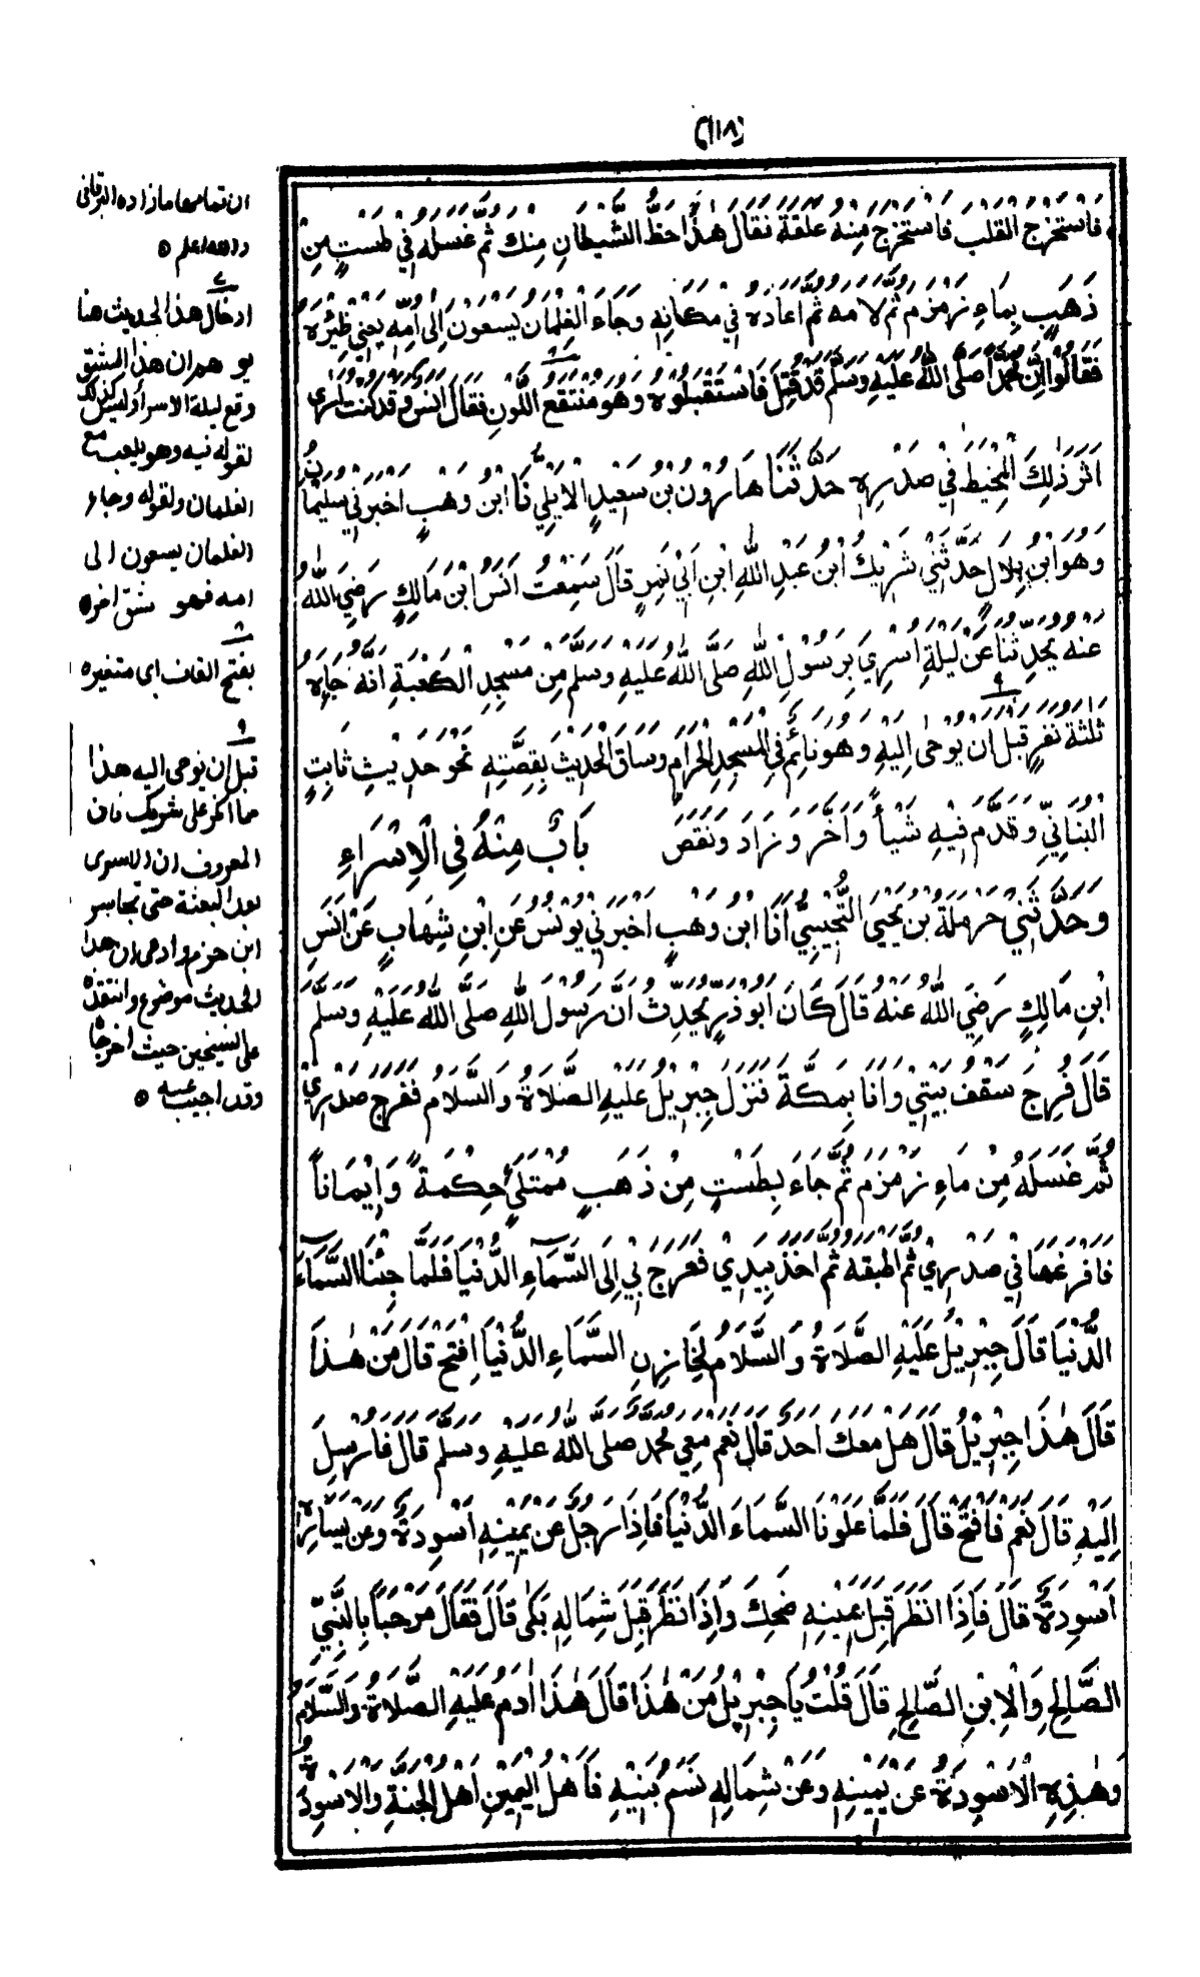 (١١٨)
فَاسْتَخْرَجَ الْقَلْبَ فَاسْتَخْرَجَ مِنْهُ عَلَقَةً فَقَالَ هٰذَا حَظُّ الشَّيْطَانِ مِنْكَ ثُمَّ غَسَلَهُ فِي طَسْتٍ مِنْ
ذَهَبٍ بِمَاءِ زَمْزَمَ ثُمَّ لَامَهُ ثُمَّ اَعَادَهُ فِي مَكَانِهِ وَجَاءَ الْغِلْمَانُ يَسْعَوْنَ اِلٰى اُمِّهِ يَعْنِي ظِئْرَهُ
فَقَالُوْا اِنَّ مُحَمَّدًا صَلَّى اللّٰهُ عَلَيْهِ وَسَلَّمَ قَدْ قُتِلَ فَاسْتَقْبَلُوْهُ وَهُوَ مُنْتَقَعُ اللَّوْنِ فَقَالَ اَنَسٌ وَقَدْ كُنْتُ اَرٰى
اَثَرَ ذٰلِكَ الْمِخْيَطِ فِي صَدْرِهِ حَدَّثَنَا هَارُوْنُ بْنُ سَعِيْدٍ الْاَيْلِيُّ نَا ابْنُ وَهْبٍ اَخْبَرَنِي سُلَيْمَانُ
وَهُوَ ابْنُ بِلَالٍ حَدَّثَنِيْ شَرِيْكُ ابْنُ عَبْدِ اللّٰهِ ابْنِ اَبِيْ نَمِرٍ قَالَ سَمِعْتُ اَنَسَ ابْنَ مَالِكٍ رَضِيَ اللّٰهُ
عَنْهُ يُحَدِّثُنَا عَنْ لَيْلَةِ اُسْرِيَ بِرَسُوْلِ اللّٰهِ صَلَّى اللّٰهُ عَلَيْهِ وَسَلَّمَ مِنْ مَسْجِدِ الْكَعْبَةِ اَنَّهُ جَاءَهُ
ثَلٰثَةُ نَفَرٍ قَبْلَ اَنْ يُوْحٰى اِلَيْهِ وَهُوَ نَائِمٌ فِي الْمَسْجِدِ الْحَرَامِ وَسَاقَ الْحَدِيْثَ بِقِصَّتِهِ نَحْوَ حَدِيْثِ ثَابِتٍ
الْبُنَانِيِّ وَقَدَّمَ فِيْهِ شَيْأً وَاَخَّرَ وَزَادَ وَنَقَصَ بَابٌ مِنْهُ فِي الْاِسْرَاءِ
وَحَدَّثَنِيْ حَرْمَلَةُ بْنُ يَحْيَى التُّجِيْبِيُّ اَنَا ابْنُ وَهْبٍ اَخْبَرَنِيْ يُوْنُسُ عَنِ ابْنِ شِهَابٍ عَنْ اَنَسِ
ابْنِ مَالِكٍ رَضِيَ اللّٰهُ عَنْهُ قَالَ كَانَ اَبُوْ ذَرٍّ يُحَدِّثُ اَنَّ رَسُوْلَ اللّٰهِ صَلَّى اللّٰهُ عَلَيْهِ وَسَلَّمَ
قَالَ فُرِجَ سَقْفُ بَيْتِيْ وَاَنَا بِمَكَّةَ فَنَزَلَ جِبْرِيْلُ عَلَيْهِ الصَّلَاةُ وَالسَّلَامُ فَفَرَجَ صَدْرِيْ
ثُمَّ غَسَلَهُ مِنْ مَاءِ زَمْزَمَ ثُمَّ جَاءَ بِطَسْتٍ مِنْ ذَهَبٍ مُمْتَلِئٍ حِكْمَةً وَاِيْمَاناً
فَاَفْرَغَهَا فِيْ صَدْرِيْ ثُمَّ اَطْبَقَهُ ثُمَّ اَخَذَ بِيَدِيْ فَعَرَجَ بِيْ اِلَى السَّمَآءِ الدُّنْيَا فَلَمَّا جِئْنَا السَّمَآءَ
الدُّنْيَا قَالَ جِبْرِيْلُ عَلَيْهِ الصَّلَاةُ وَالسَّلَامُ لِخَازِنِ السَّمَاءِ الدُّنْيَا اِفْتَحْ قَالَ مَنْ هٰذَا
قَالَ هٰذَا جِبْرِيْلُ قَالَ هَلْ مَعَكَ اَحَدٌ قَالَ نَعَمْ مَعِيَ مُحَمَّدٌ صَلَّى اللّٰهُ عَلَيْهِ وَسَلَّمَ قَالَ فَاُرْسِلَ
اِلَيْهِ قَالَ نَعَمْ فَافْتَحْ قَالَ فَلَمَّا عَلَوْنَا السَّمَاءَ الدُّنْيَا فَاِذَا رَجُلٌ عَنْ يَمِيْنِهِ اَسْوِدَةٌ وَعَنْ يَسَارِهِ
اَسْوِدَةٌ قَالَ فَاِذَا نَظَرَ قِبَلَ يَمِيْنِهِ ضَحِكَ وَاِذَا نَظَرَ قِبَلَ شِمَالِهِ بَكٰى قَالَ فَقَالَ مَرْحَبًا بِالنَّبِيِّ
الصَّالِحِ وَالْاِبْنِ الصَّالِحِ قَالَ قُلْتُ يَا جِبْرِيْلُ مَنْ هٰذَا قَالَ هٰذَا اٰدَمُ عَلَيْهِ الصَّلَاةُ وَالسَّلَامُ
وَهٰذِهِ الْاَسْوِدَةُ عَنْ يَمِيْنِهِ وَعَنْ شِمَالِهِ نَسَمُ بَنِيْهِ فَاَهْلُ الْيَمِيْنِ اَهْلُ الْجَنَّةِ وَالْاَسْوِدَةُ
ان تمامها ما زاده البرقانى
والله اعلم ٥
٧
ادخال هذا الحديث هنا
يوهم ان هذا الشق
وقع ليلة الاسرأ وليس كذلك
لقوله فيه وهو يلعب مع
الغلمان ولقوله وجاء
الغلمان يسعون الى
امه فهو شق اخر ٥
٨
بفتح القاف اى متغيره
٩
قبل ان يوحى اليه هذا
مما انكر على شريك فان
المعروف ان الاسرى
بعد البعثة حتى تجاسر
ابن حزم وادعى ان هذا
الحديث موضوع وانتقده
على الشيخين حيث اخرجاه
وقد اجيب عنه ٥